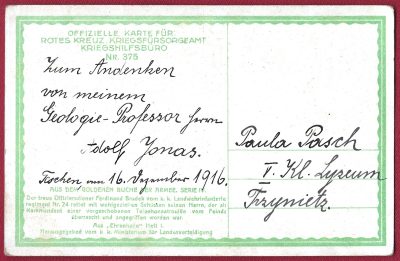 OFFIZIELLE KARTE FÜR
ROTES KREUZ, KRIEGSFÜRSORGEAMT
KRIEGSHILFSBÜRO
NR. 375
Zum Andenken
von meinem
Geologie-Professor Herrn
Adolf Jonas.
Teschen am 16. Dezember 1916.
Paula Pasch
V. Kl. Lyzeum
Trzynietz.
AUS DEM GOLDENEN BUCHE DER ARMEE, SERIE II:
Der treue Offiziersdiener Ferdinand Brudek vom k. k. Landwehrinfanterie-
regiment Nr. 24 rettet mit wohlgezielten Schüssen seinen Herrn, der als
Kommandant einer vorgeschobenen Telephonpatrouille vom Feinde
überrascht und angegriffen worden war.
Aus „Ehrenhalle“ Heft I.
Herausgegeben vom k. k. Ministerium für Landesverteidigung